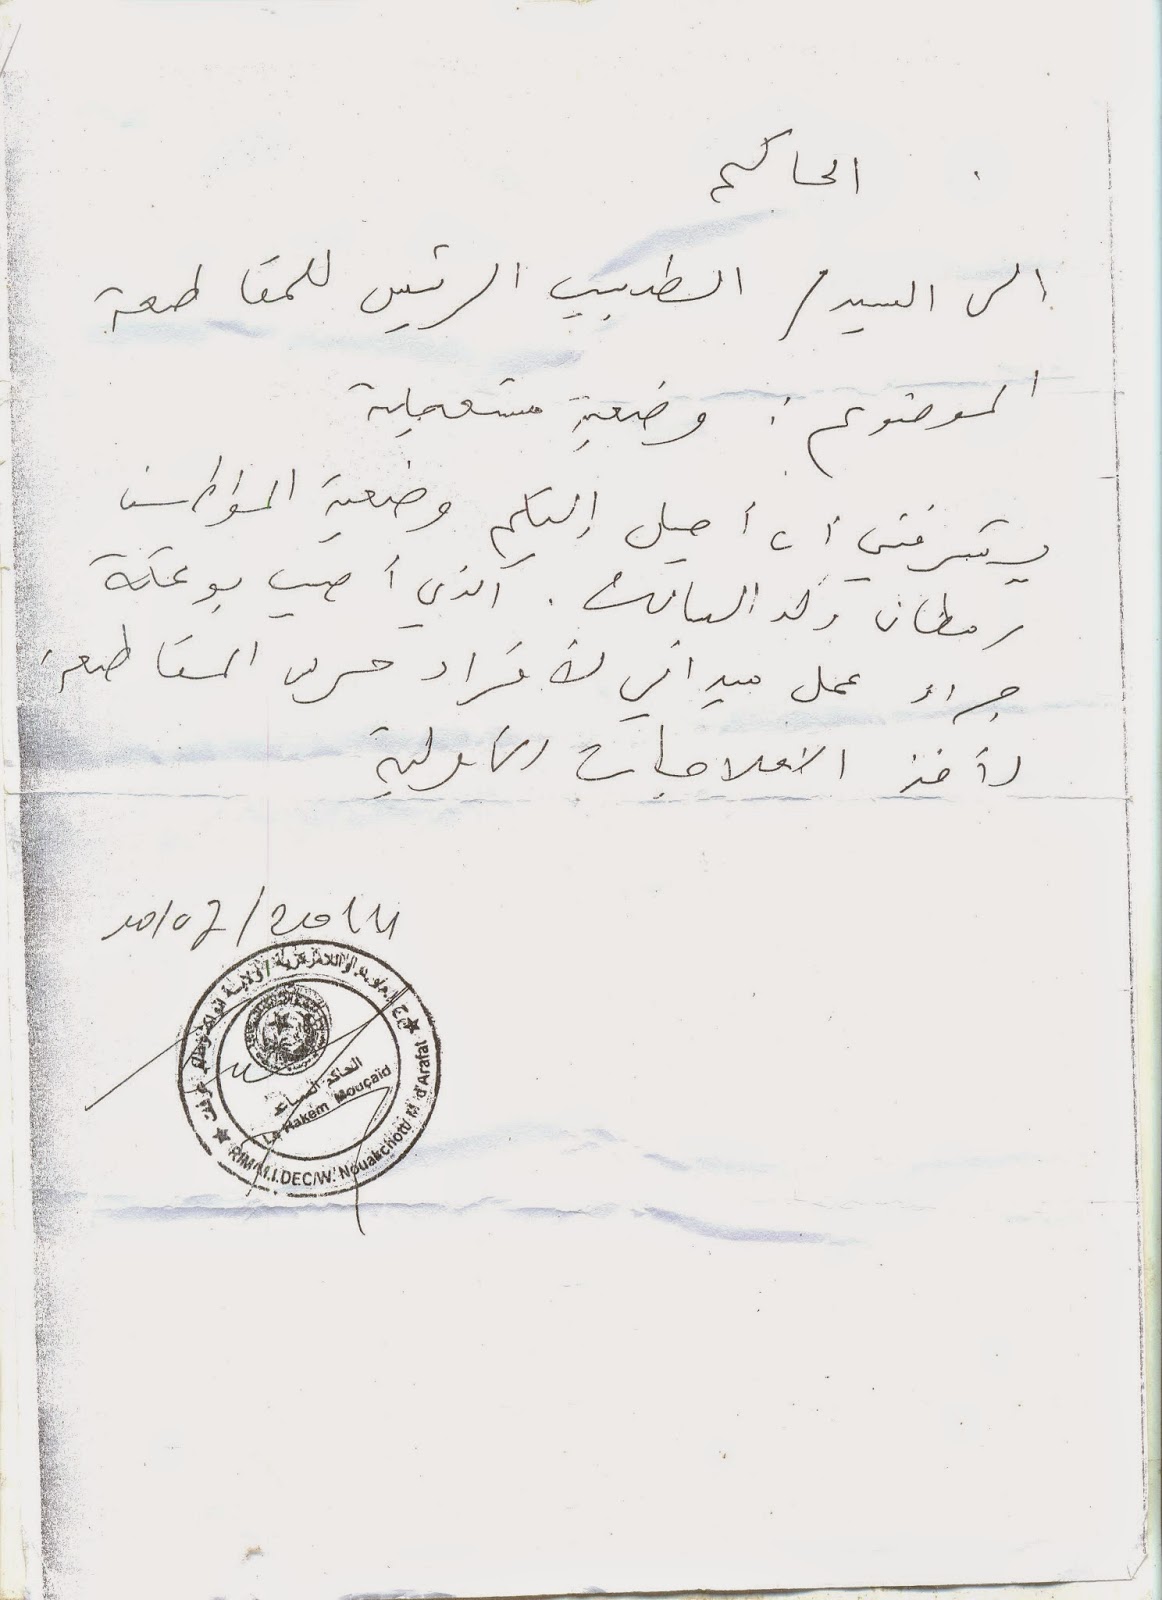 الحاكم
الى السيد / الطبيب الرئيس للمقاطعة
الموضوع : وضعية مستعجلة
يشرفني أن أحيل إليكم وضعية المواطن
رمظان ولد السالك . الذي أصيب بوعكة
جراء عمل ميداني لأفراد حرس المقاطعة
لأخذ العلاجات الأولية
10/07/2014
الحاكم المساعد
Le Hakem Mouçaid
RIM/M.I.DEC/W. Nouakchott/ M. d'Arafat